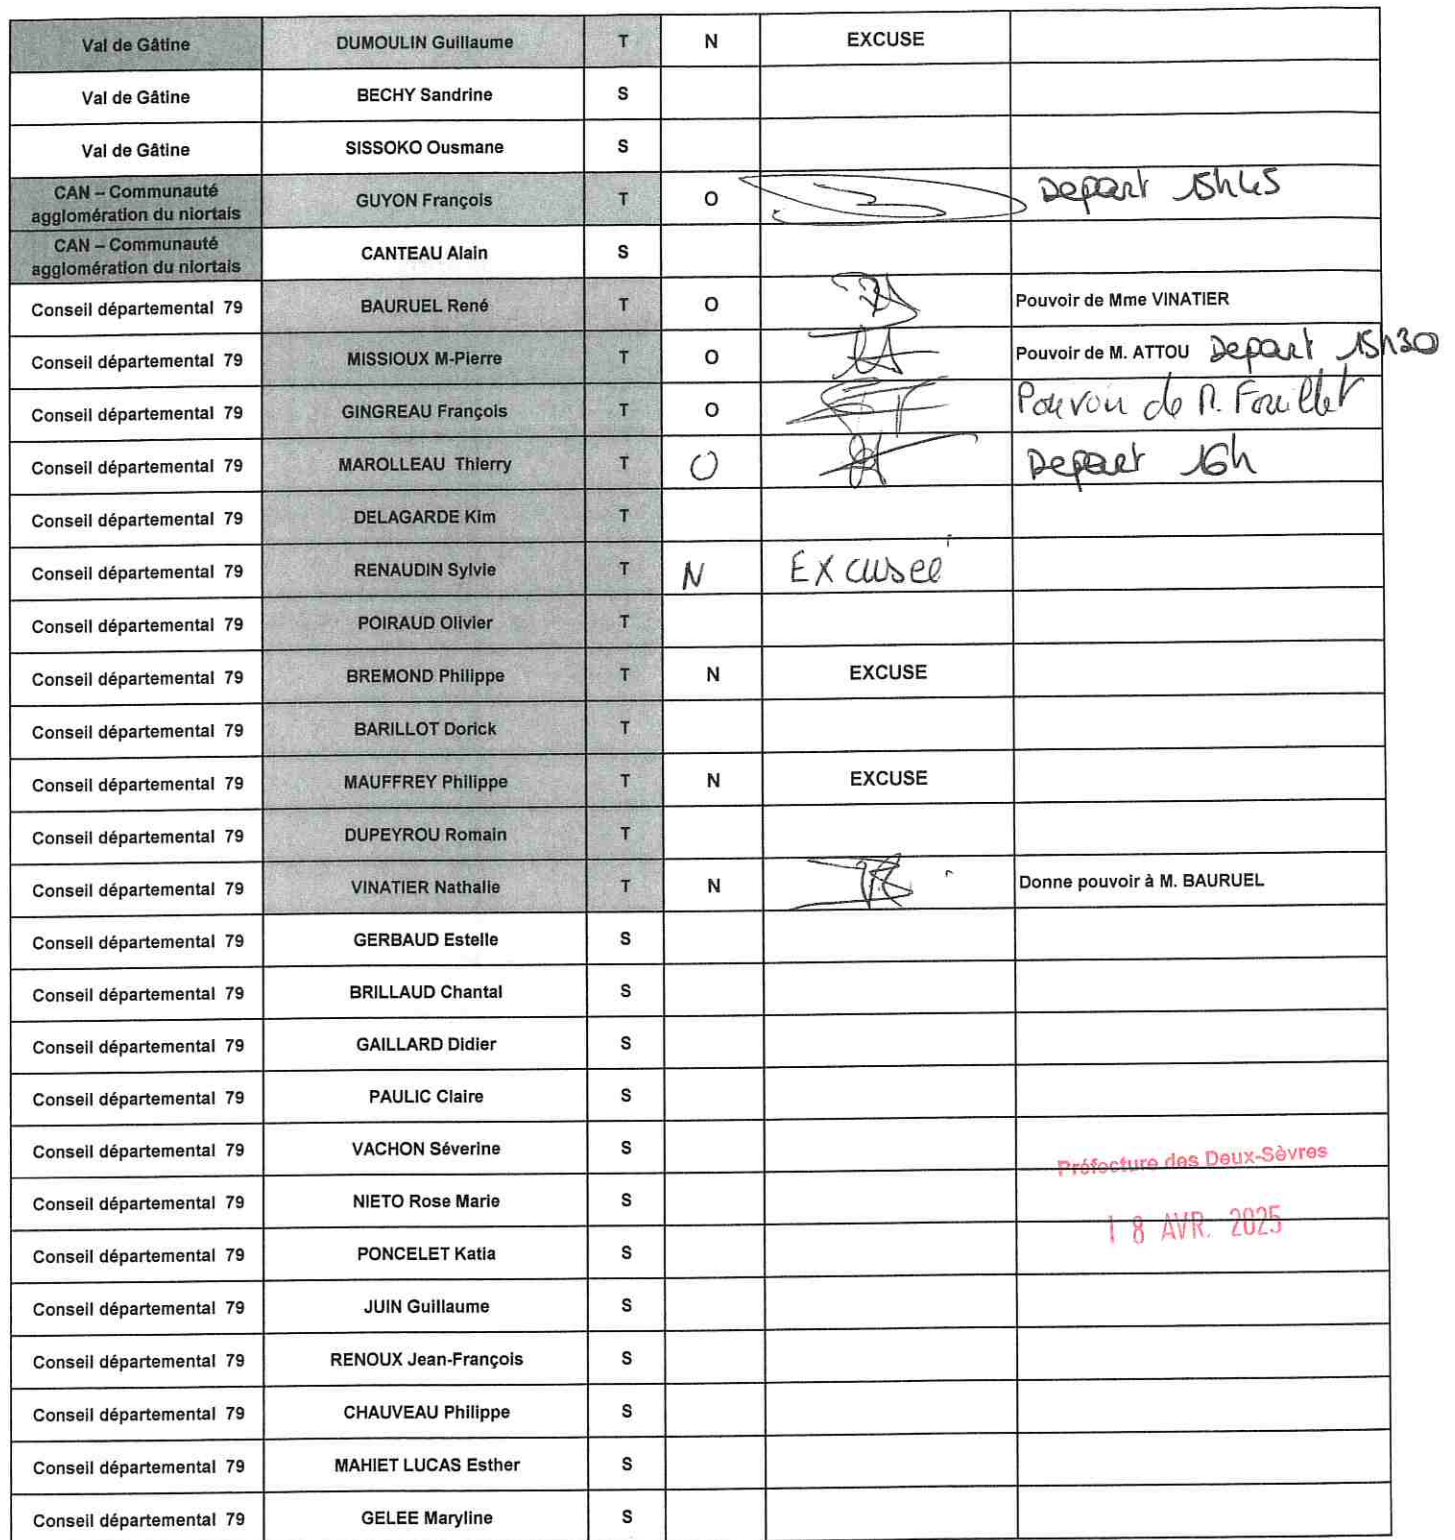 Val de Gâtine DUMOULIN Guillaume T N EXCUSE
Val de Gâtine BECHY Sandrine S
Val de Gâtine SISSOKO Ousmane S
CAN – Communauté
agglomération du niortais GUYON François T O Depart 15h45
CAN – Communauté
agglomération du niortais CANTEAU Alain S
Conseil départemental 79 BAURUEL René T O Pouvoir de Mme VINATIER
Conseil départemental 79 MISSIOUX M-Pierre T O Pouvoir de M. ATTOU Depart 15h30
Conseil départemental 79 GINGREAU François T O Pouvoir de M. Fouillet
Conseil départemental 79 MAROLLEAU Thierry T O Depart 16h
Conseil départemental 79 DELAGARDE Kim T
Conseil départemental 79 RENAUDIN Sylvie T N Excusée
Conseil départemental 79 POIRAUD Olivier T
Conseil départemental 79 BREMOND Philippe T N EXCUSE
Conseil départemental 79 BARILLOT Dorick T
Conseil départemental 79 MAUFFREY Philippe T N EXCUSE
Conseil départemental 79 DUPEYROU Romain T
Conseil départemental 79 VINATIER Nathalie T N Donne pouvoir à M. BAURUEL
Conseil départemental 79 GERBAUD Estelle S
Conseil départemental 79 BRILLAUD Chantal S
Conseil départemental 79 GAILLARD Didier S
Conseil départemental 79 PAULIC Claire S
Conseil départemental 79 VACHON Séverine S
Préfecture des Deux-Sèvres
Conseil départemental 79 NIETO Rose Marie S
18 AVR. 2025
Conseil départemental 79 PONCELET Katia S
Conseil départemental 79 JUIN Guillaume S
Conseil départemental 79 RENOUX Jean-François S
Conseil départemental 79 CHAUVEAU Philippe S
Conseil départemental 79 MAHIET LUCAS Esther S
Conseil départemental 79 GELEE Maryline S